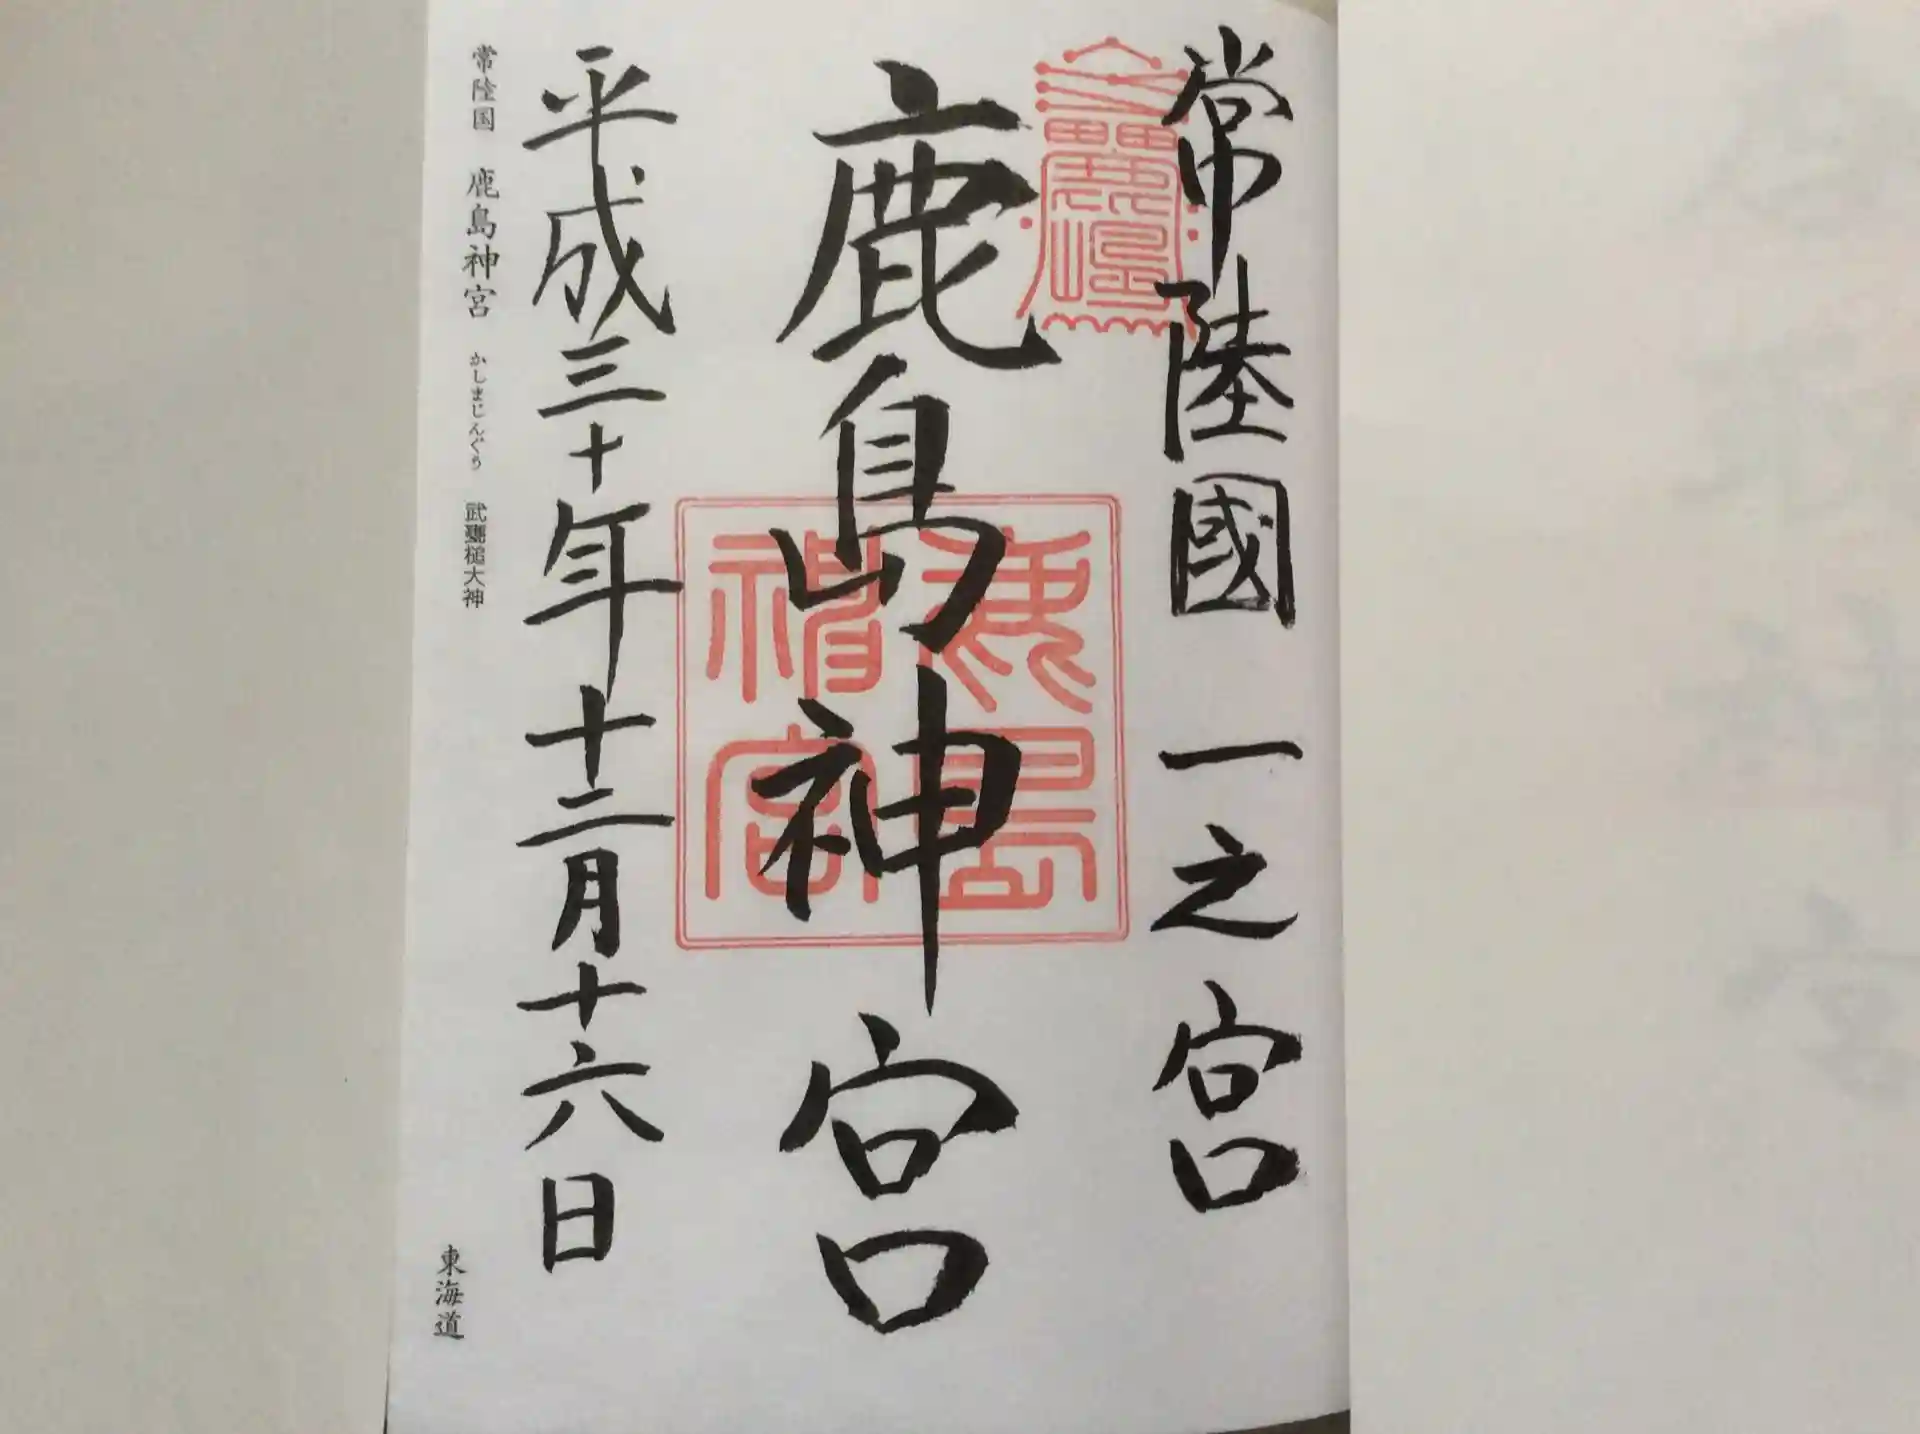 常陸國一之宮
鹿島神宮
鹿島
神宮
平成三十年十二月十六日
常陸国 鹿島神宮 かしまじんぐう 武甕槌大神
東海道